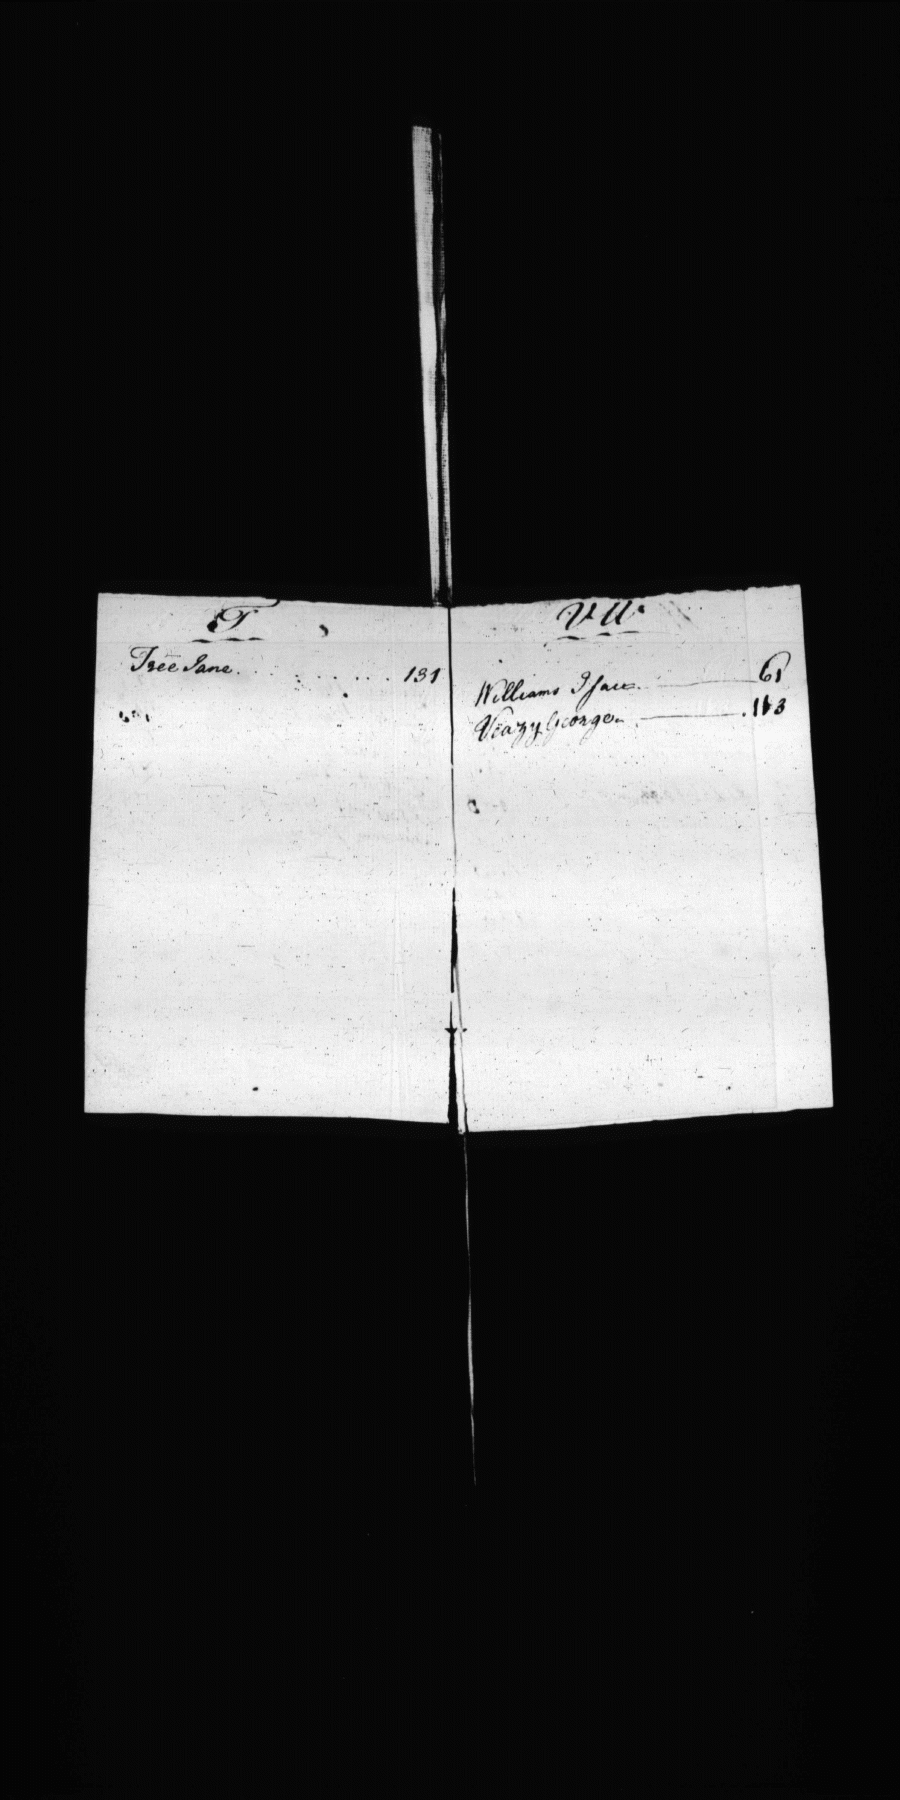 T
Tree Jane. . . . . . . . . 131
V W
Williams Isaac 61
Veazy George 113